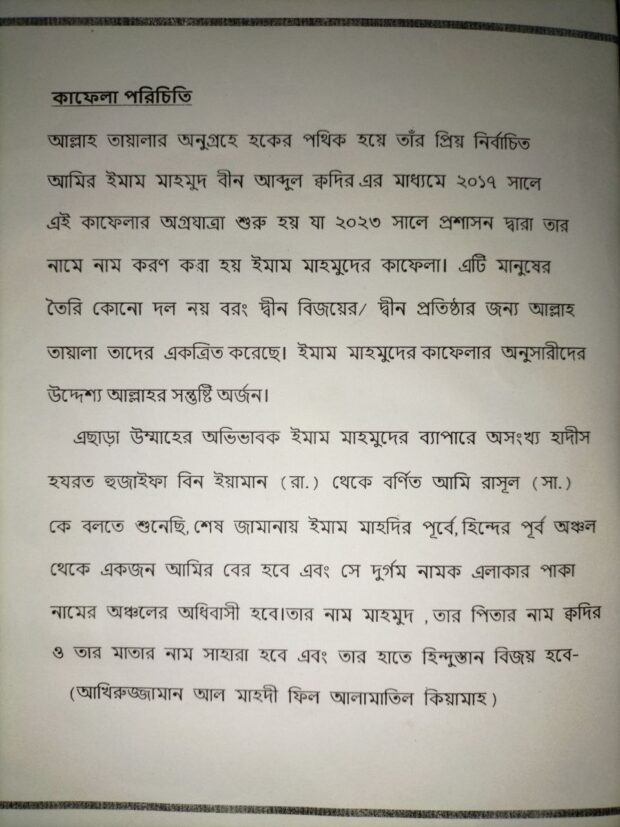 কাফেলা পরিচিতি
আল্লাহ তায়ালার অনুগ্রহে হকের পথিক হয়ে তাঁর প্রিয় নির্বাচিত
আমির ইমাম মাহমুদ বীন আব্দুল ক্বদির এর মাধ্যমে ২০১৭ সালে
এই কাফেলার অগ্রযাত্রা শুরু হয় যা ২০২৩ সালে প্রশাসন দ্বারা তার
নামে নাম করণ করা হয় ইমাম মাহমুদের কাফেলা। এটি মানুষের
তৈরি কোনো দল নয় বরং দ্বীন বিজয়ের/ দ্বীন প্রতিষ্ঠার জন্য আল্লাহ
তায়ালা তাদের একত্রিত করেছে। ইমাম মাহমুদের কাফেলার অনুসারীদের
উদ্দেশ্য আল্লাহর সন্তুষ্টি অর্জন।
এছাড়া উম্মাহের অভিভাবক ইমাম মাহমুদের ব্যাপারে অসংখ্য হাদীস
হযরত হুজাইফা বিন ইয়ামান (রা.) থেকে বর্ণিত আমি রাসূল (সা.)
কে বলতে শুনেছি, শেষ জামানায় ইমাম মাহদির পূর্বে, হিন্দের পূর্ব অঞ্চল
থেকে একজন আমির বের হবে এবং সে দুর্গম নামক এলাকার পাকা
নামের অঞ্চলের অধিবাসী হবে।তার নাম মাহমুদ ,তার পিতার নাম ক্বদির
ও তার মাতার নাম সাহারা হবে এবং তার হাতে হিন্দুস্তান বিজয় হবে-
(আখিরুজ্জামান আল মাহদী ফিল আলামাতিল কিয়ামাহ )